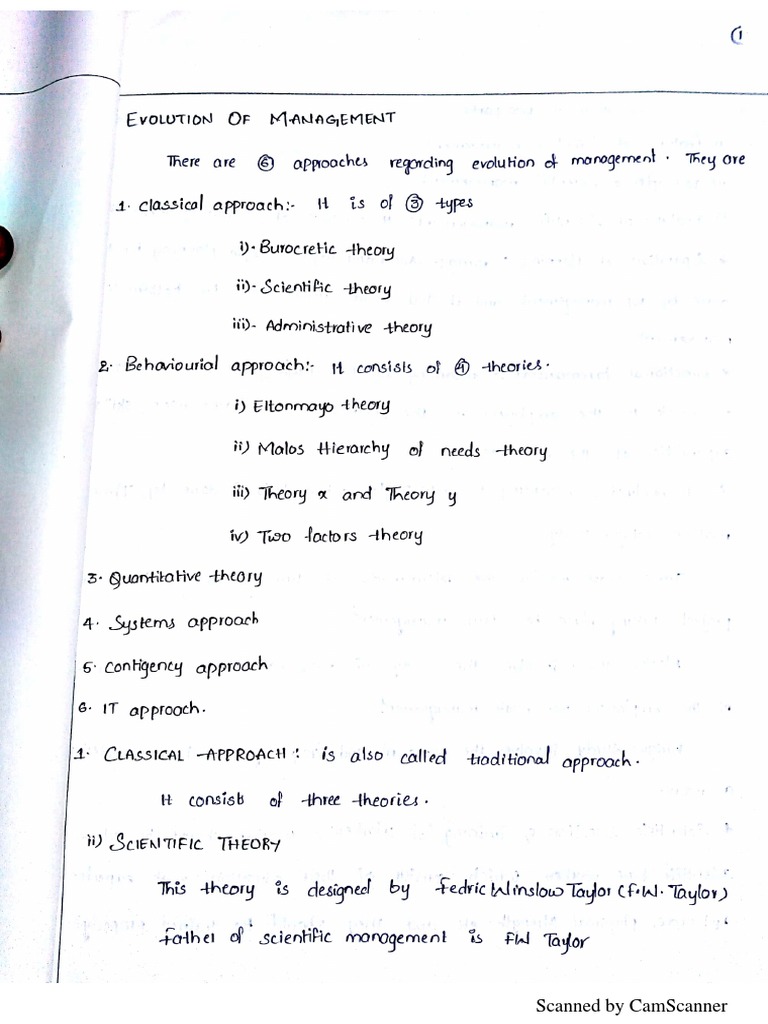 1
EVOLUTION OF MANAGEMENT
There are 6 approaches regarding evolution of management. They are
1. classical approach:- It is of 3 types
i)- Burocretic theory
ii)- Scientific theory
iii)- Administrative theory
2. Behaviourial approach:- It consists of 4 theories.
i) Eltonmayo theory
ii) Malos Hierarchy of needs theory
iii) Theory x and Theory y
iv) Two factors theory
3. Quantitative theory
4. Systems approach
5. contigency approach
6. IT approach.
1. CLASSICAL APPROACH: is also called traditional approach.
It consist of three theories.
ii) SCIENTIFIC THEORY
This theory is designed by Fedric Winslow Taylor (F.W. Taylor)
Father of scientific management is FW Taylor
Scanned by CamScanner